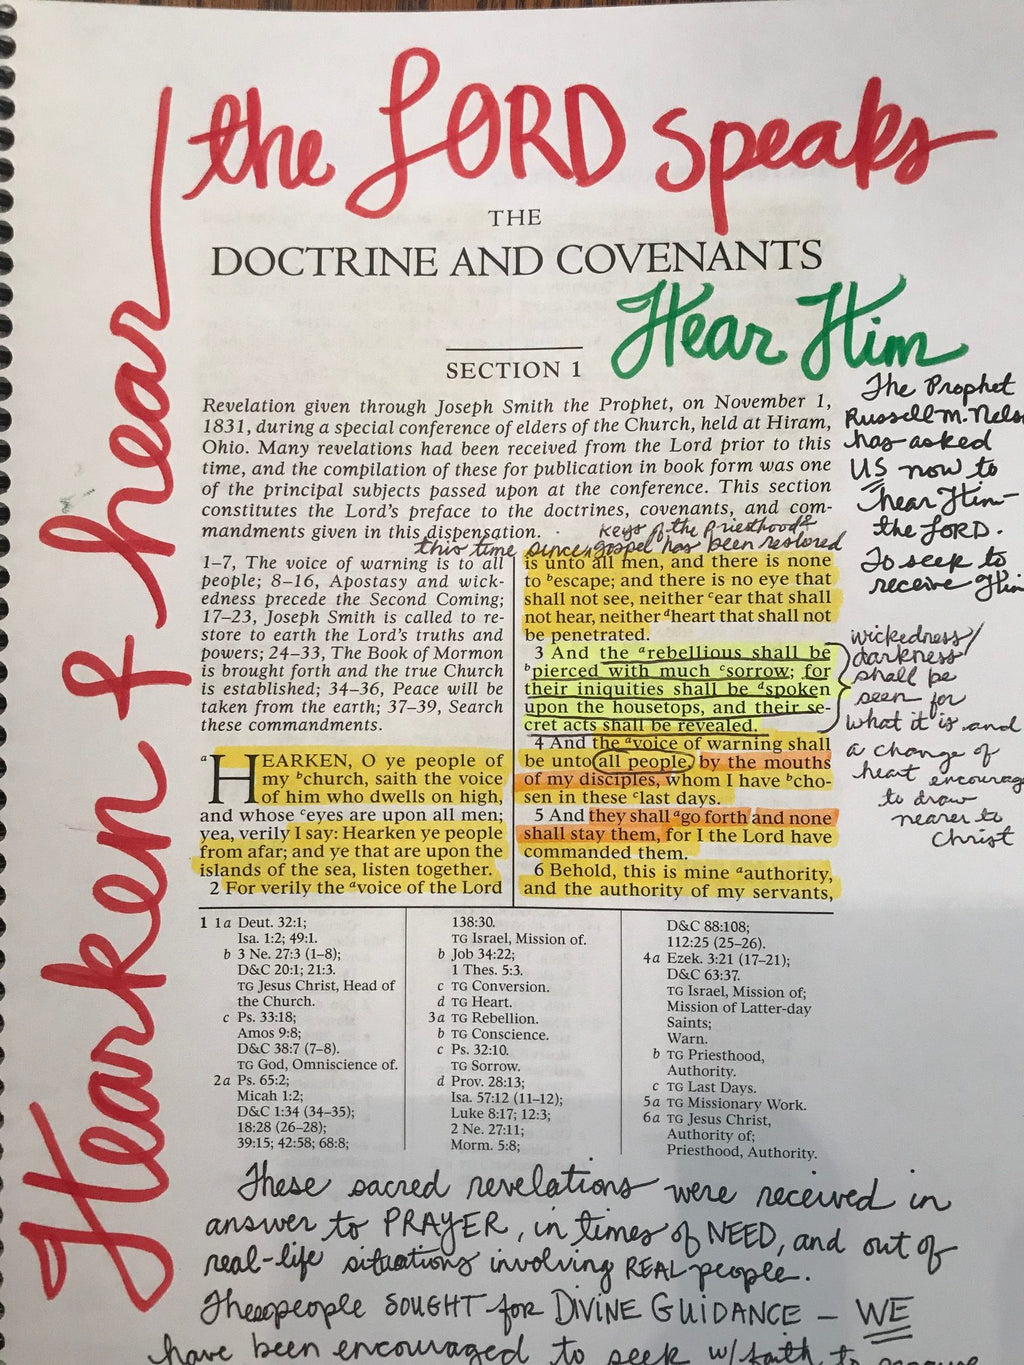 the LORD speaks
Hearken & hear
THE
DOCTRINE AND COVENANTS
Hear Him
SECTION 1
Revelation given through Joseph Smith the Prophet, on November 1,
1831, during a special conference of elders of the Church, held at Hiram,
Ohio. Many revelations had been received from the Lord prior to this
time, and the compilation of these for publication in book form was one
of the principal subjects passed upon at the conference. This section
constitutes the Lord's preface to the doctrines, covenants, and com-
mandments given in this dispensation.
The Prophet
Russell M. Nels
has asked
US now to
hear Him—
the LORD.
To seek to
receive Him
keys of the Priesthood &
this time since gospel has been restored
1–7, The voice of warning is to all
people; 8–16, Apostasy and wick-
edness precede the Second Coming;
17–23, Joseph Smith is called to re-
store to earth the Lord's truths and
powers; 24–33, The Book of Mormon
is brought forth and the true Church
is established; 34–36, Peace will be
taken from the earth; 37–39, Search
these commandments.
a HEARKEN, O ye people of
my bchurch, saith the voice
of him who dwells on high,
and whose ceyes are upon all men;
yea, verily I say: Hearken ye people
from afar; and ye that are upon the
islands of the sea, listen together.
2 For verily the avoice of the Lord
is unto all men, and there is none
to bescape; and there is no eye that
shall not see, neither cear that shall
not hear, neither dheart that shall not
be penetrated.
3 And the arebellious shall be
bpierced with much csorrow; for
their iniquities shall be dspoken
upon the housetops, and their se-
cret acts shall be revealed.
4 And the avoice of warning shall
be unto all people, by the mouths
of my disciples, whom I have bcho-
sen in these clast days.
5 And they shall ago forth and none
shall stay them, for I the Lord have
commanded them.
6 Behold, this is mine aauthority,
and the authority of my servants,
wickedness/
darkness
shall be
seen for
what it is and
a change of
heart encourag
to draw
nearer to
Christ
1 1a Deut. 32:1;
Isa. 1:2; 49:1.
b 3 Ne. 27:3 (1–8);
D&C 20:1; 21:3.
TG Jesus Christ, Head of
the Church.
c Ps. 33:18;
Amos 9:8;
D&C 38:7 (7–8).
TG God, Omniscience of.
2a Ps. 65:2;
Micah 1:2;
D&C 1:34 (34–35);
18:28 (26–28);
39:15; 42:58; 68:8;
138:30.
TG Israel, Mission of.
b Job 34:22;
1 Thes. 5:3.
c TG Conversion.
d TG Heart.
3a TG Rebellion.
b TG Conscience.
c Ps. 32:10.
TG Sorrow.
d Prov. 28:13;
Isa. 57:12 (11–12);
Luke 8:17; 12:3;
2 Ne. 27:11;
Morm. 5:8;
D&C 88:108;
112:25 (25–26).
4a Ezek. 3:21 (17–21);
D&C 63:37.
TG Israel, Mission of;
Mission of Latter-day
Saints;
Warn.
b TG Priesthood,
Authority.
c TG Last Days.
5a TG Missionary Work.
6a TG Jesus Christ,
Authority of;
Priesthood, Authority.
These sacred revelations were received in
answer to PRAYER, in times of NEED, and out of
real-life situations involving REAL people.
These people SOUGHT for DIVINE GUIDANCE — WE
have been encouraged to seek w/ faith to